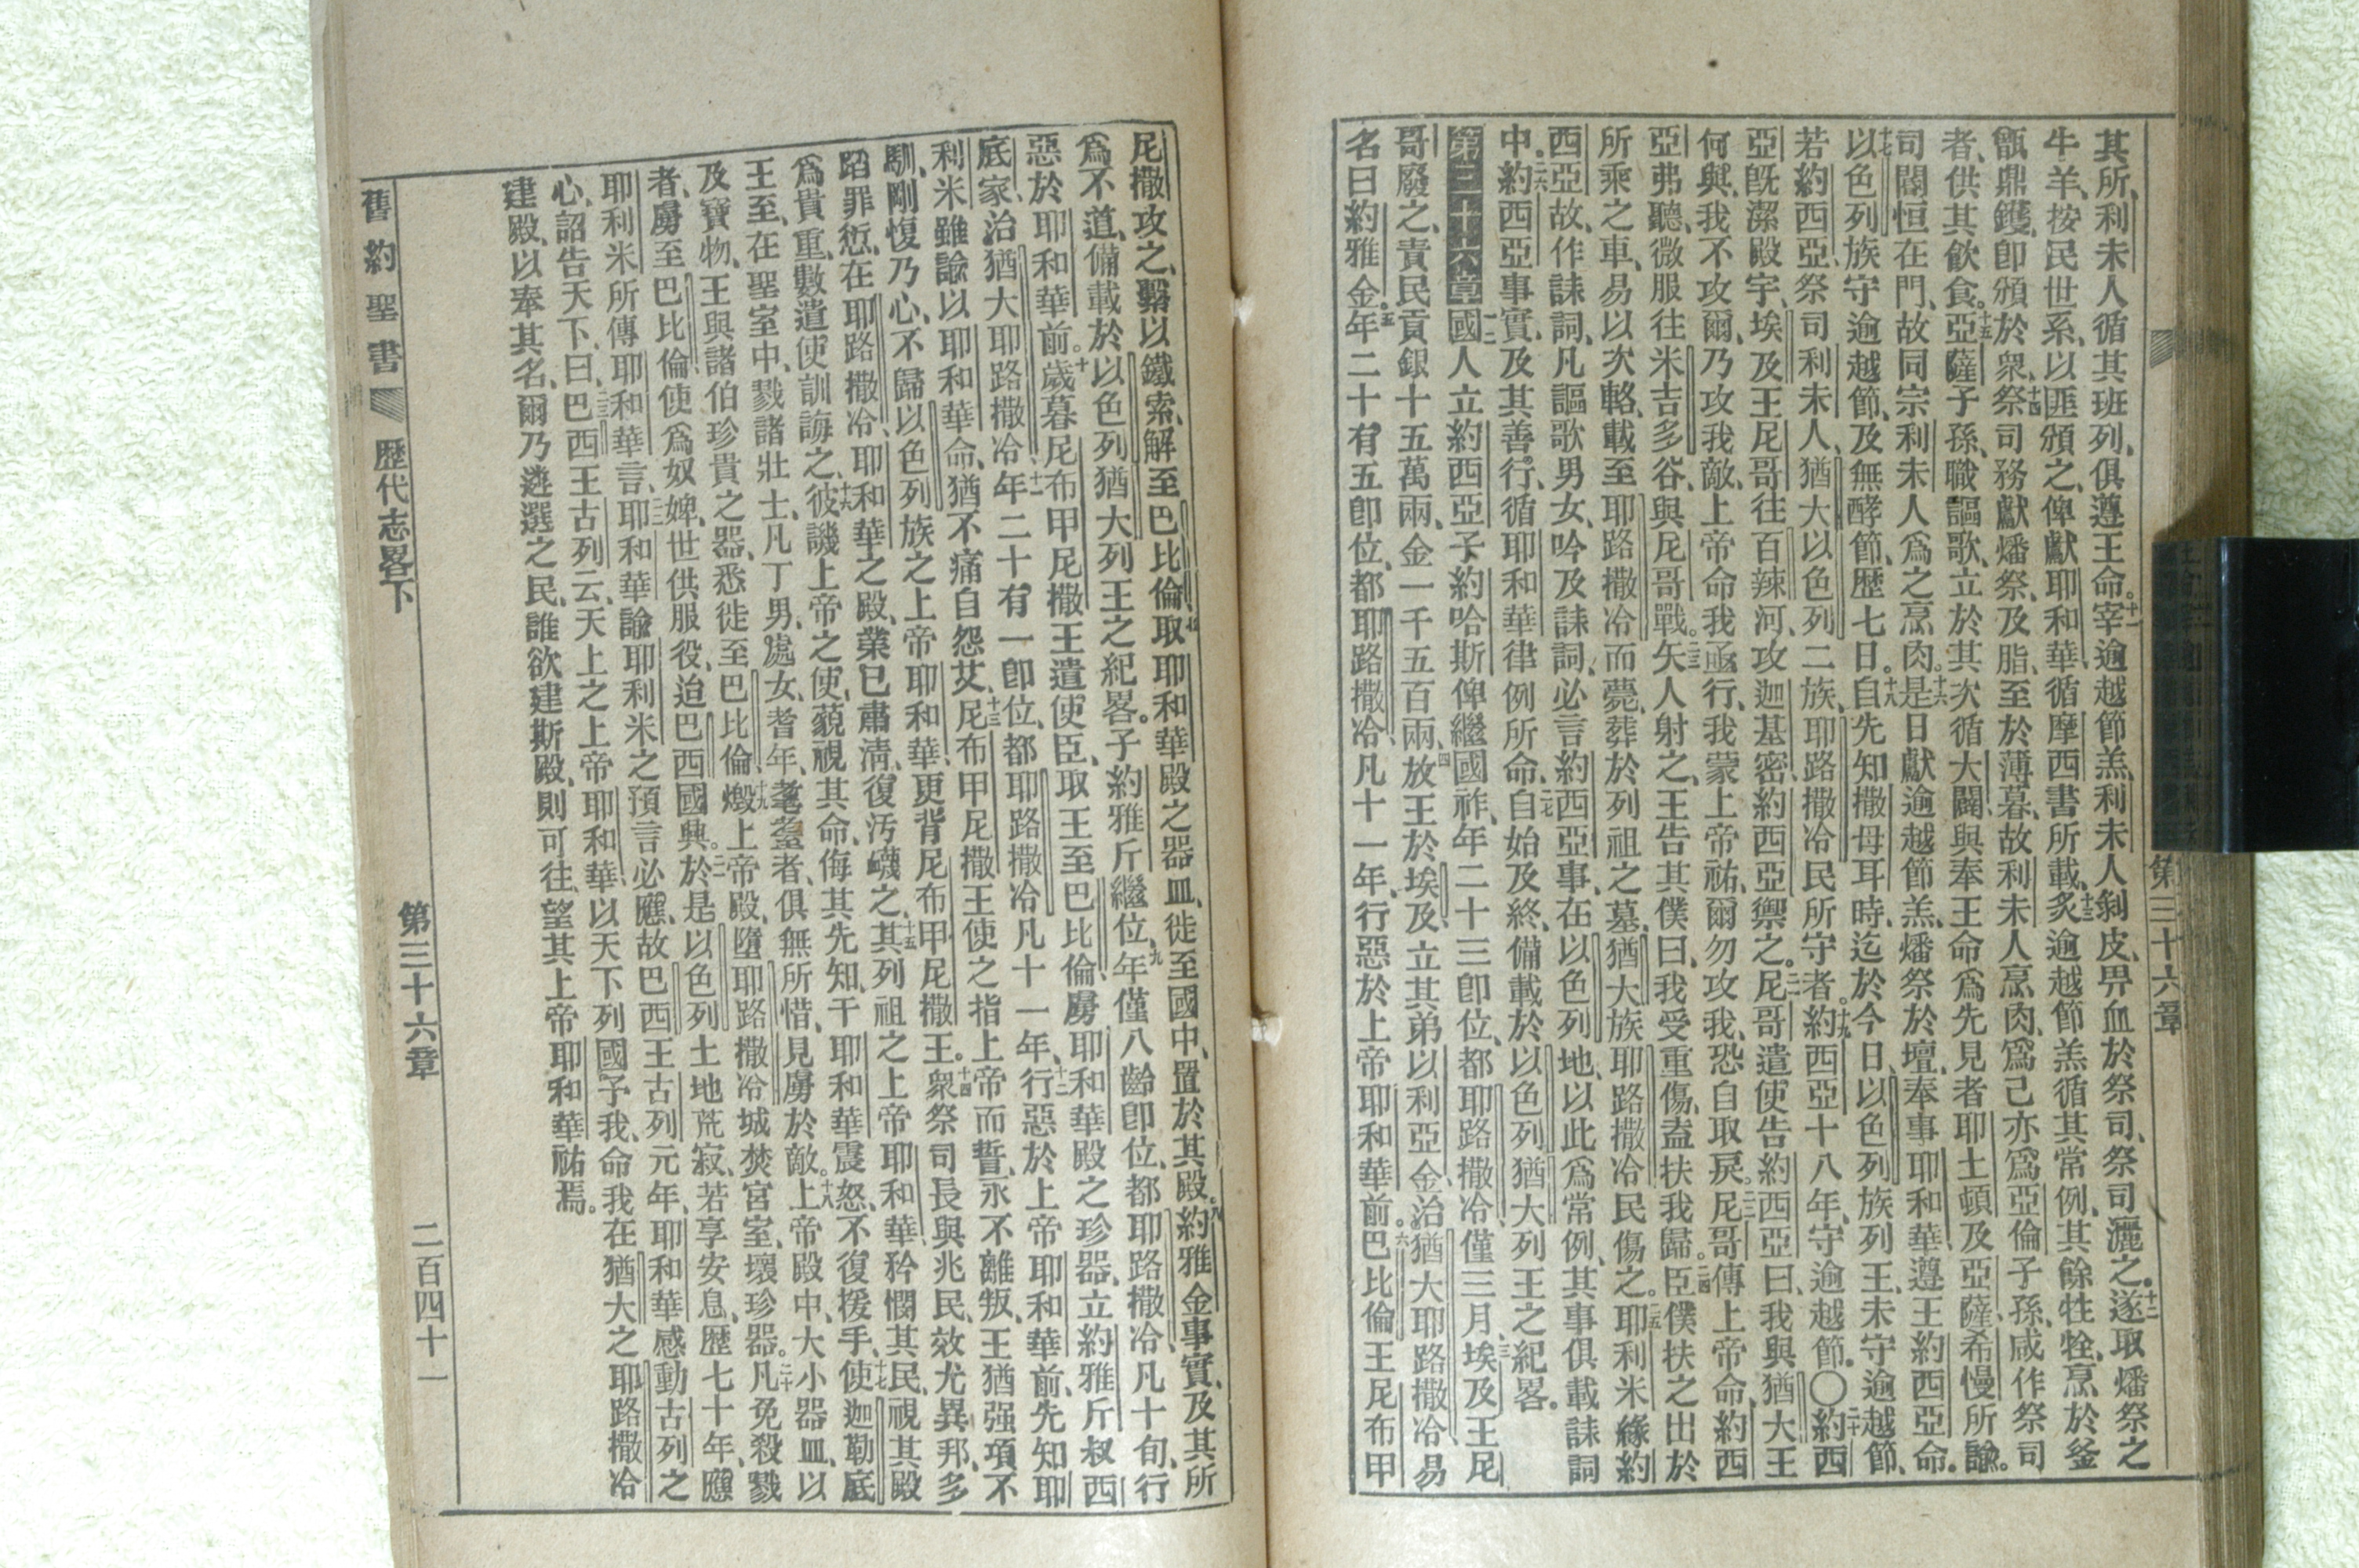 第三十六章
其所、利未人循其班列、俱遵王命。十一宰逾越節羔、利未人剝皮、畀血於祭司、祭司灑之。十二遂取燔祭之
牛羊、按民世系、以匪頒之、俾獻耶和華、循摩西書所載、十三炙逾越節羔、循其常例、其餘牲牷、烹於釜
甑鼎鑊、卽頒於衆。十四祭司務獻燔祭、及脂、至於薄暮、故利未人烹肉、爲己亦爲亞倫子孫、咸作祭司
者、供其飲食。十五亞薩子孫、職謳歌、立於其次、循大闢與奉王命爲先見者耶土頓及亞薩、希慢所諭。
司閽恒在門、故同宗利未人爲之烹肉。十六是日獻逾越節羔、燔祭於壇、奉事耶和華、遵王約西亞命。
十七以色列族守逾越節、及無酵節、歷七日。十八自先知撒母耳時、迄於今日、以色列族列王、未守逾越節、
若約西亞、祭司利未人、猶大以色列二族、耶路撒冷民所守者。十九約西亞十八年、守逾越節。〇二十約西
亞旣潔殿宇、埃及王尼哥往百辣河、攻迦基密、約西亞禦之。二一尼哥遣使告約西亞曰、我與猶大王
何與、我不攻爾、乃攻我敵、上帝命我亟行、我蒙上帝祐、爾勿攻我、恐自取戾。二二尼哥傳上帝命、約西
亞弗聽、微服往米吉多谷、與尼哥戰。二三矢人射之、王告其僕曰、我受重傷、盍扶我歸。二四臣僕扶之出於
所乘之車、易以次輅、載至耶路撒冷而薨、葬於列祖之墓、猶大族耶路撒冷民傷之。二五耶利米緣約
西亞故、作誄詞、凡謳歌男女、吟及誄詞、必言約西亞事、在以色列地、以此爲常例、其事俱載誄詞
中。二六約西亞事實、及其善行、循耶和華律例所命、二七自始及終、備載於以色列猶大列王之紀畧。
第三十六章 一二國人立約西亞子約哈斯俾繼國祚、年二十三卽位、都耶路撒冷、僅三月、三埃及王尼
哥廢之、責民貢銀十五萬兩、金一千五百兩、四放王於埃及、立其弟以利亞金、治猶大耶路撒冷、易
名曰約雅金。五年二十有五卽位、都耶路撒冷、凡十一年、行惡於上帝耶和華前。六巴比倫王尼布甲
尼撒攻之、縶以鐵索、解至巴比倫、七取耶和華殿之器皿、徙至國中、置於其殿。八約雅金事實、及其所
爲不道、備載於以色列猶大列王之紀畧。子約雅斤繼位、九年僅八齡卽位、都耶路撒冷、凡十旬、行
惡於耶和華前。十歲暮尼布甲尼撒王遣使臣、取王至巴比倫、虜耶和華殿之珍器、立約雅斤叔西
底家、治猶大耶路撒冷、十一年二十有一卽位、都耶路撒冷凡十一年、十二行惡於上帝耶和華前、先知耶
利米雖諭以耶和華命、猶不痛自怨艾、十三尼布甲尼撒王使之指上帝而誓、永不離叛、王猶强項不
馴、剛愎乃心、不歸以色列族之上帝耶和華、更背尼布甲尼撒王。十四衆祭司長與兆民、效尤異邦、多
蹈罪愆、在耶路撒冷、耶和華之殿、業已肅淸、復汚衊之、十五其列祖之上帝耶和華矜憫其民、視其殿
爲貴重、數遣使訓誨之、十六彼譏上帝之使、藐視其命、侮其先知、干耶和華震怒、不復援手、十七使迦勒底
王至、在聖室中、戮諸壯士、凡丁男、處女、耆年、耄耋者、俱無所惜、見虜於敵。十八上帝殿中、大小器皿、以
及寶物、王與諸伯珍貴之器、悉徙至巴比倫、十九燬上帝殿、墮耶路撒冷城、焚宮室、壞珍器。二十凡免殺戮
者、虜至巴比倫、使爲奴婢、世供服役、迨巴西國興。二一於是以色列土地荒寂、若享安息、歷七十年、應
耶利米所傳耶和華言、二二耶和華諭耶利米之預言必應、故巴西王古列元年、耶和華感動古列之
心、詔告天下、曰、二三巴西王古列云、天上之上帝耶和華、以天下列國予我、命我在猶大之耶路撒冷
建殿、以奉其名、爾乃遴選之民、誰欲建斯殿、則可往、望其上帝耶和華祐焉。
舊約聖書 歷代志畧下 第三十六章 二百四十一